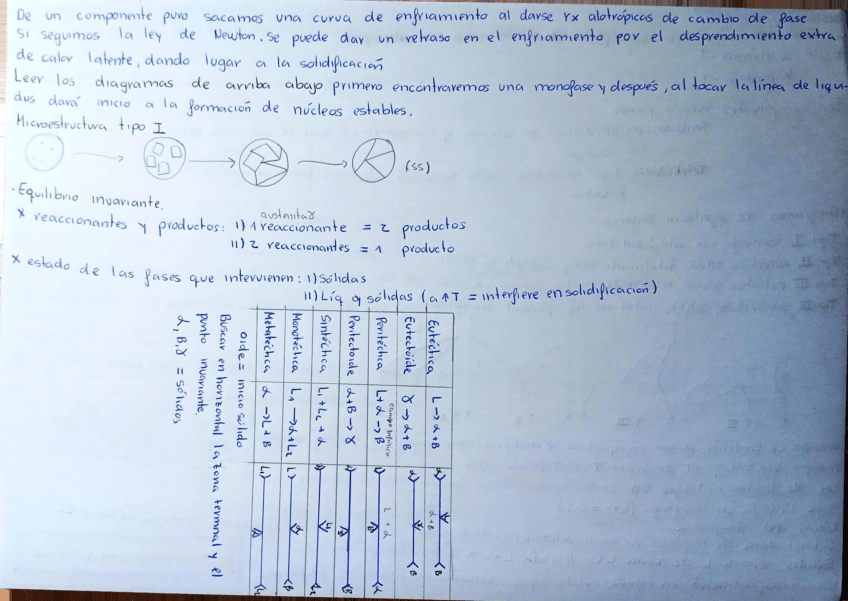 De un componente puro sacamos una curva de enfriamiento al darse rx alotrópicas de cambio de fase
Si seguimos la ley de Newton. Se puede dar un retraso en el enfriamiento por el desprendimiento extra
de calor latente, dando lugar a la solidificación
Leer los diagramas de arriba abajo primero encontraremos una monofase y después, al tocar la línea de liqui-
dus dará inicio a la formación de núcleos estables.
Microestructura tipo I
(ss)
- Equilibrio invariante.
austenita γ
* reaccionantes y productos: I) 1 reaccionante = 2 productos
II) 2 reaccionantes = 1 producto
* estado de las fases que intervienen: I) Sólidas
II) Líq y sólidas (a ↑T = interfiere en solidificación)
Eutéctica L → α + B α) α+B (B
Eutectoide γ → α + B α) γ (B
Peritéctica L + α → B campo bifásico L) L + α B (α
Peritectoide α + B → γ α) (B
Sintéctica L1 + L2 → α (L2
Monotéctica L1 → α + L2 (B
Metatéctica α → L + B L1) (L2
oide = inicio sólido
Buscar en horizontal la zona terminal y el
punto invariante
α, B, γ = sólidos